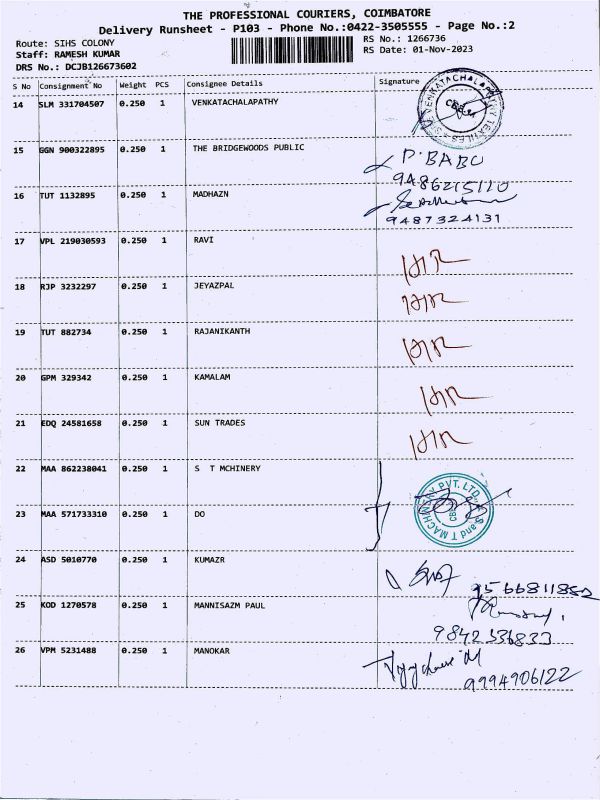 THE PROFESSIONAL COURIERS, COIMBATORE
Delivery Runsheet - P103 - Phone No.:0422-3505555 - Page No.:2
Route: SIHS COLONY
RS No.: 1266736
Staff: RAMESH KUMAR
RS Date: 01-Nov-2023
DRS No.: DCJB126673602
S No Consignment No Weight PCS Consignee Details Signature
14 SLM 331704507 0.250 1 VENKATACHALAPATHY
15 GGN 900322895 0.250 1 THE BRIDGEWOODS PUBLIC P. BABU
9486215110
16 TUT 1132895 0.250 1 MADHAZN
9487324131
17 VPL 219030593 0.250 1 RAVI
18 RJP 3232297 0.250 1 JEYAZPAL
19 TUT 882734 0.250 1 RAJANIKANTH
20 GPM 329342 0.250 1 KAMALAM
21 EDQ 24581658 0.250 1 SUN TRADES
22 MAA 862238041 0.250 1 S T MCHINERY
S and T MACHINERY PVT. LTD.
CBE
23 MAA 571733310 0.250 1 DO
24 ASD 5010770 0.250 1 KUMAZR
25 KOD 1270578 0.250 1 MANNISAZM PAUL
9842336833
26 VPM 5231488 0.250 1 MANOKAR
9994906122